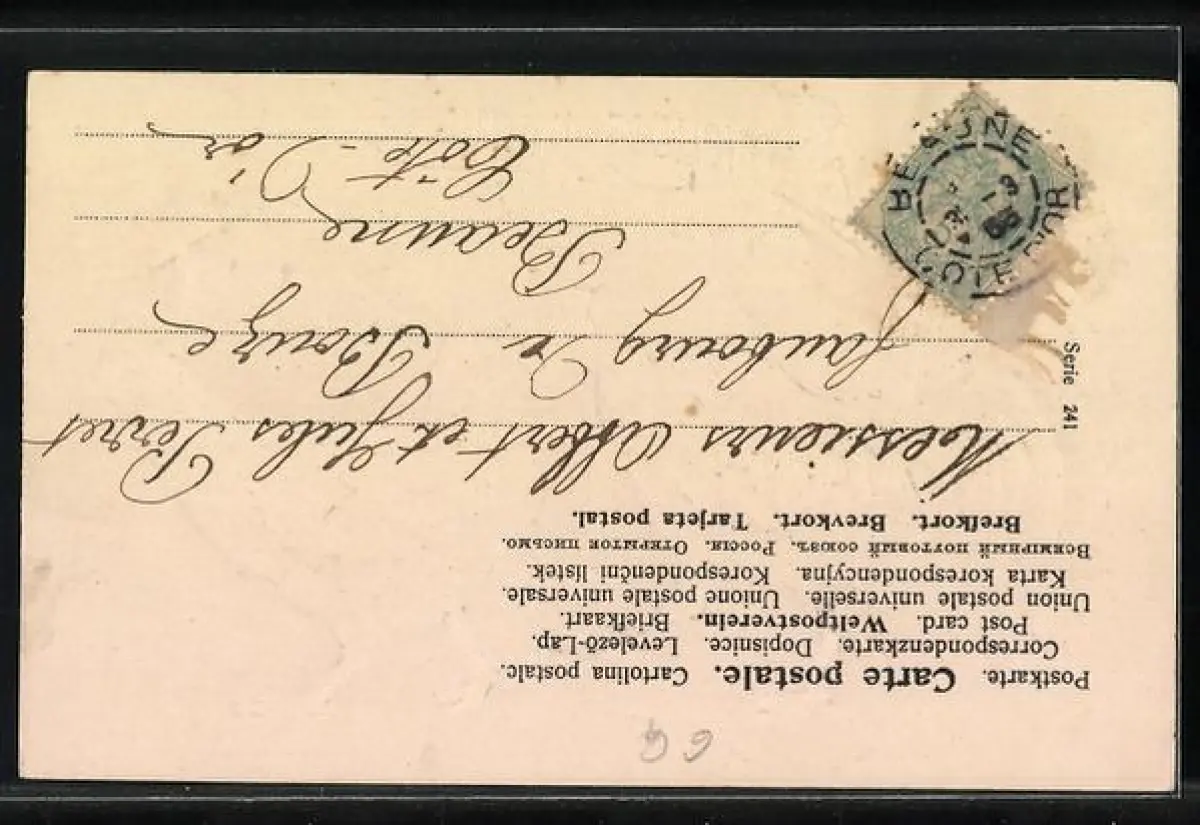 Postkarte. Carte postale. Cartolina postale.
Correspondenzkarte. Dopisnice. Levelező-Lap.
Post card. Weltpostverein. Briefkaart.
Union postale universelle. Unione postale universale.
Karta korespondencyjna. Korespondenční listek.
Всемірный почтовый союзъ. Россія. Открытое письмо.
Brefkort. Brevkort. Tarjeta postal.
Messieurs Albert et Jules Perret
faubourg de Bouze
Beaune
Côte-D'or
Serie 241
BEAUNE
COTE D'OR